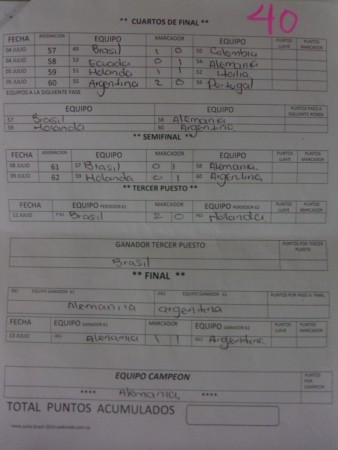 40
** CUARTOS DE FINAL **
FECHA ASIGNACION EQUIPO MARCADOR EQUIPO PUNTOS LLAVE PUNTOS MARCADOR
04 JULIO 57 49 Brasil 1 0 50 Colombia
04 JULIO 58 53 Ecuador 0 1 54 Alemania
05 JULIO 59 51 Holanda 1 1 52 Italia
05 JULIO 60 55 Argentina 2 0 56 Portugal
EQUIPOS A LA SIGUIENTE FASE
EQUIPO EQUIPO PUNTOS PASO A SIGUIENTE RONDA
57 Brasil 58 Alemania
59 Holanda 60 Argentina
** SEMIFINAL **
FECHA ASIGNACION EQUIPO MARCADOR EQUIPO PUNTOS LLAVE PUNTOS MARCADOR
08 JULIO 61 57 Brasil 0 1 58 Alemania
09 JULIO 62 59 Holanda 0 1 60 Argentina
** TERCER PUESTO **
FECHA EQUIPO PERDEDOR 61 MARCADOR EQUIPO PERDEDOR 62 PUNTOS LLAVE PUNTOS MARCADOR
12 JULIO P61 Brasil 2 0 P62 Holanda
GANADOR TERCER PUESTO PUNTOS POR TERCER PUESTO
Brasil
** FINAL **
EQUIPO GANADOR 61 EQUIPO GANADOR 62 PUNTOS POR PASO A FINAL
Alemania argentina
FECHA EQUIPO GANADOR 61 MARCADOR EQUIPO GANADOR 62 PUNTOS LLAVE PUNTOS MARCADOR
13 JULIO Alemania 1 1 Argentina
EQUIPO CAMPEON PUNTOS POR CAMPEON
**** Alemania ****
TOTAL PUNTOS ACUMULADOS